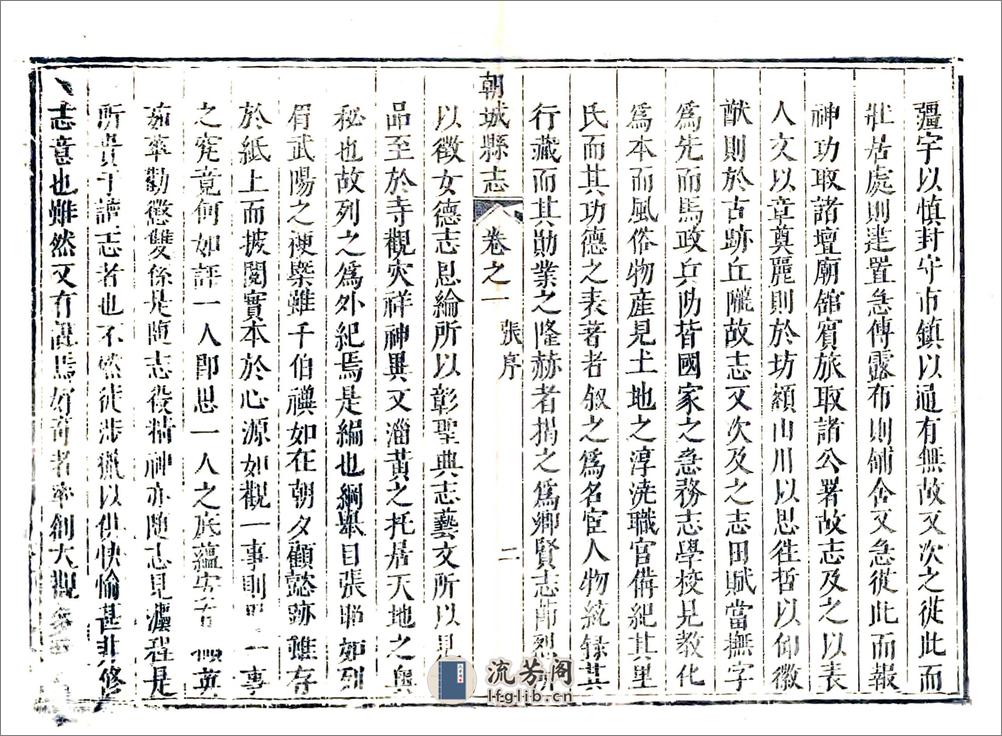 疆宇以慎封守市鎮以通有無故又次之從此而
壯居處則建置急傳露布則鋪舍又急從此而報
神功取諸壇廟館賓旅取諸公署故志及之以表
人文以章奠麗則於坊潁山川以思徃哲以仰徽
猷則於古跡丘隴故志又次及之志田賦當撫字
爲先而馬政兵防皆國家之急務志學校見教化
爲本而風俗物產見土地之淳澆職官備紀其里
氏而其功德之表著者叙之爲名宦人物統錄其
行藏而其勛業之隆赫者揭之爲鄉賢志節烈所
朝城縣志 卷之一 張序 二
以徵女德志恩綸所以彰聖典志藝文所以見
品至於寺觀灾祥神異又淄黃之托居天地之與
秘也故列之爲外紀焉是編也綱舉目張聨如列
眉武陽之梗槩雖千伯禩如在朝夕顧懿跡雖存
於紙上而披閱實本於心源如觀一事則 一事
之究竟何如評一人卽思一人之底蘊安
茹萃勸懲雙係是随志役精神亦随志見灋程是
所貴于讀志者也不然徒涉獵以供快愉甚非修
志意也雖然又有說焉好奇者率創大觀
流芳阁
lfglib.cn